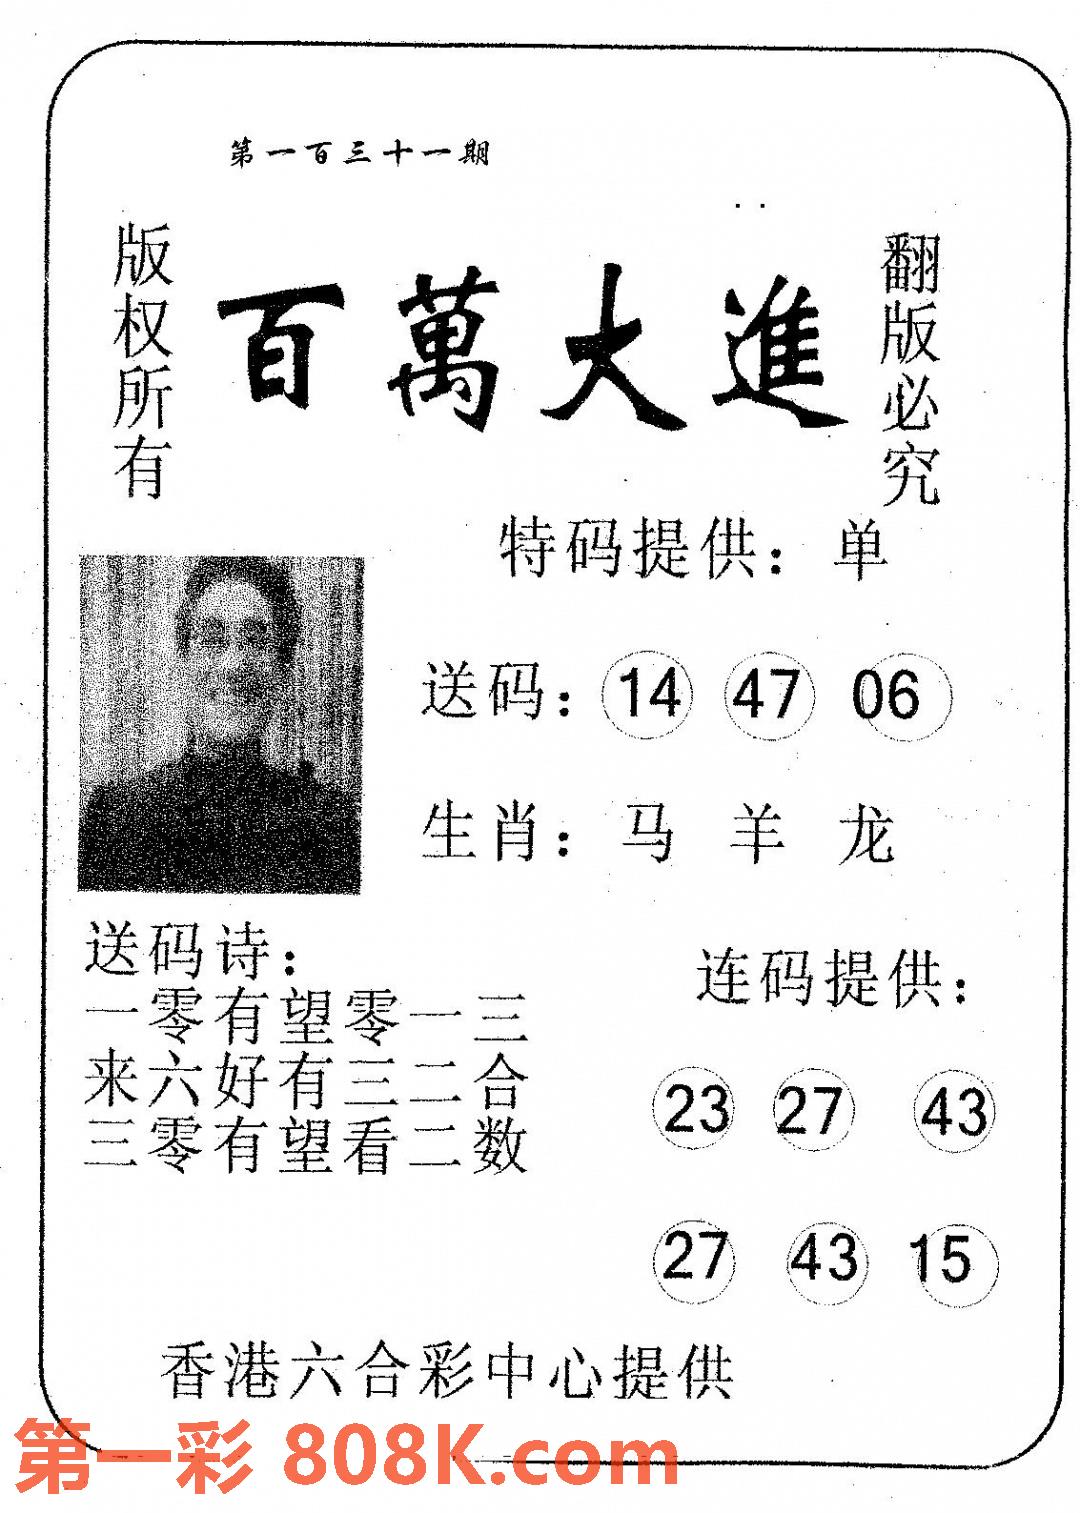 第一百三十一期
版权所有
百萬大進
翻版必究
特码提供：单
送码：14 47 06
生肖：马 羊 龙
送码诗：
一零有望零一三
来六好有三二合
三零有望看二数
连码提供：
23 27 43
27 43 15
香港六合彩中心提供
第一彩 808K.com